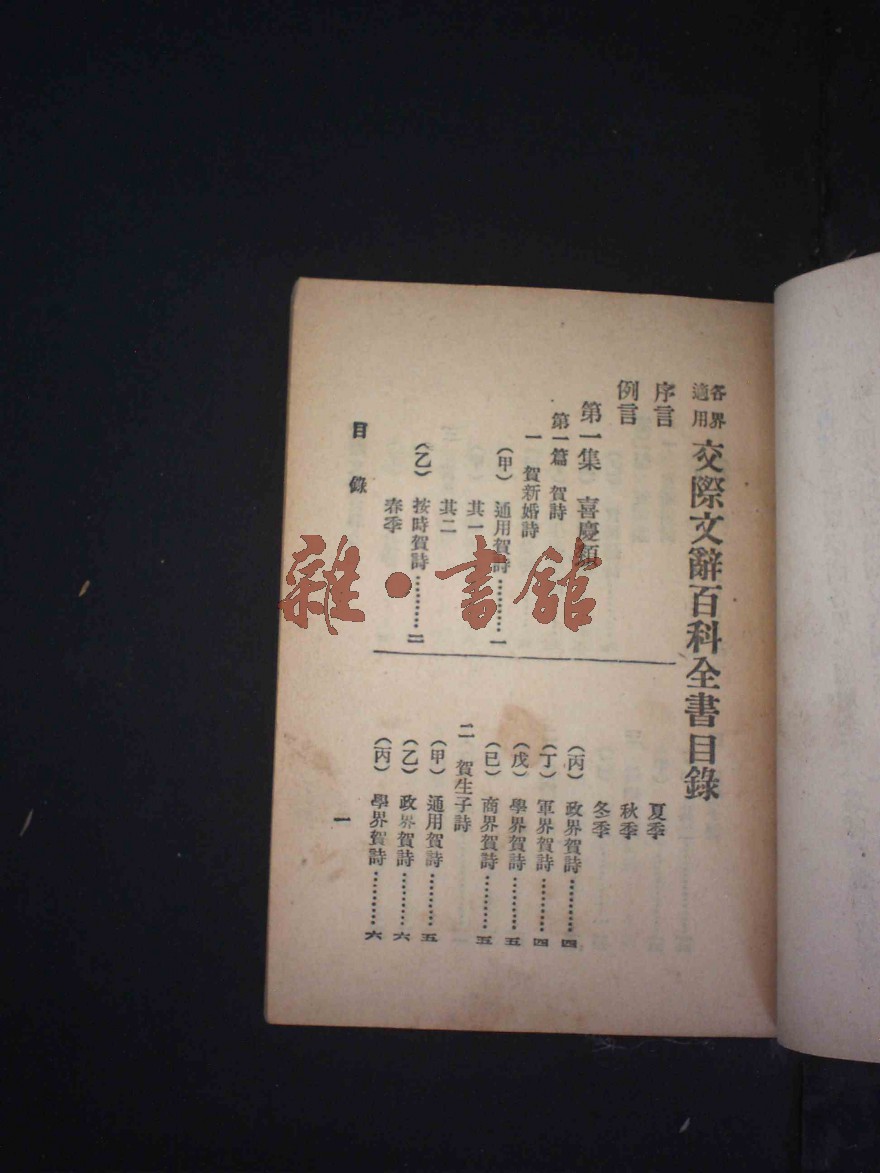 各界適用 交際文辭百科全書目錄
序言
例言
第一集 喜慶類
第一篇 賀詩
一 賀新婚詩
(甲) 通用賀詩…………一
其一
其二
(乙) 按時賀詩…………二
春季
夏季
秋季
冬季
(丙) 政界賀詩…………四
(丁) 軍界賀詩…………四
(戊) 學界賀詩…………五
(已) 商界賀詩…………五
二 賀生子詩
(甲) 通用賀詩…………五
(乙) 政界賀詩…………六
(丙) 學界賀詩…………六
目錄
一
雜·書館